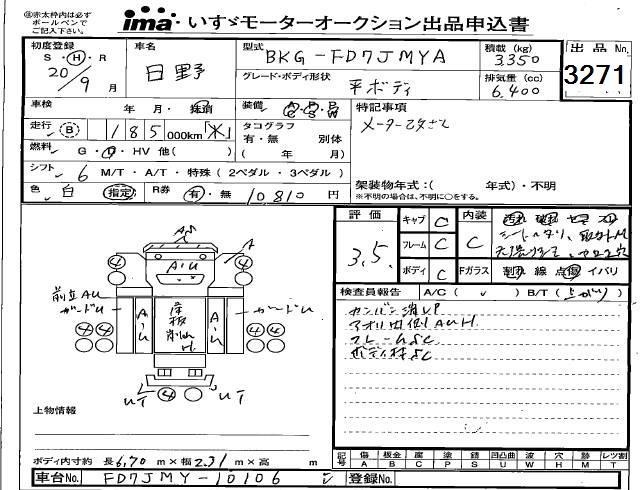 ※赤太枠内は必ず
ボールペンで
ご記入下さい。
ima いすゞモーターオークション出品申込書
初度登録 S・H・R 20/9月
車名 日野
型式 BKG-FD7JMYA
グレード・ボディ形状 平ボディ
積載(kg) 3350
排気量(cc) 6.400
出品No. 3271
車検 年・月・抹消
装備
特記事項
走行 B 185,000km「米」
タコグラフ 有・無 別体 ( 年 月)
メーター改ざん
燃料 G・D・HV 他( )
シフト 6 M/T・A/T・特殊(2ペダル・3ペダル)
架装物年式:( 年式)・不明
※不明の場合は、不明に○をする。
色 白 指定 R券 有・無 10810円
評価 3.5
キャブ C
フレーム C
ボディ C
内装 C
Fガラス 割・線・点・傷・イバリ
検査員報告 A/C( ✓ ) B/T( 上がり )
カンバン消しP
アオリ内側AUH
フレームSC
ボディ枠SC
AS
A
A・U
④ ④
前立AU
ガードU ガードU
A・U 床板 削れH A・U
④④ ④④
UT ④ UT
上物情報
ボディ内寸約 長6.70m×幅2.31m×高 m
記号 傷A 板金B 腐C 塗P 錆S 凹凸曲U 波W 穴H 跡M レツ割T
車台No. FD7JMY-10106
登録No.